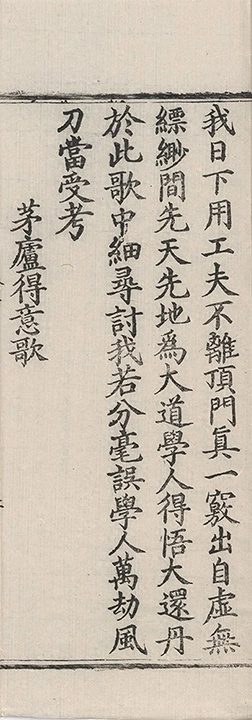 我日下用工夫不離頂門眞一竅出自虛無
縹緲間先天先地爲大道學人得悟大還丹
於此歌中細尋討我若分毫誤學人萬劫風
刀當受考
茅廬得意歌